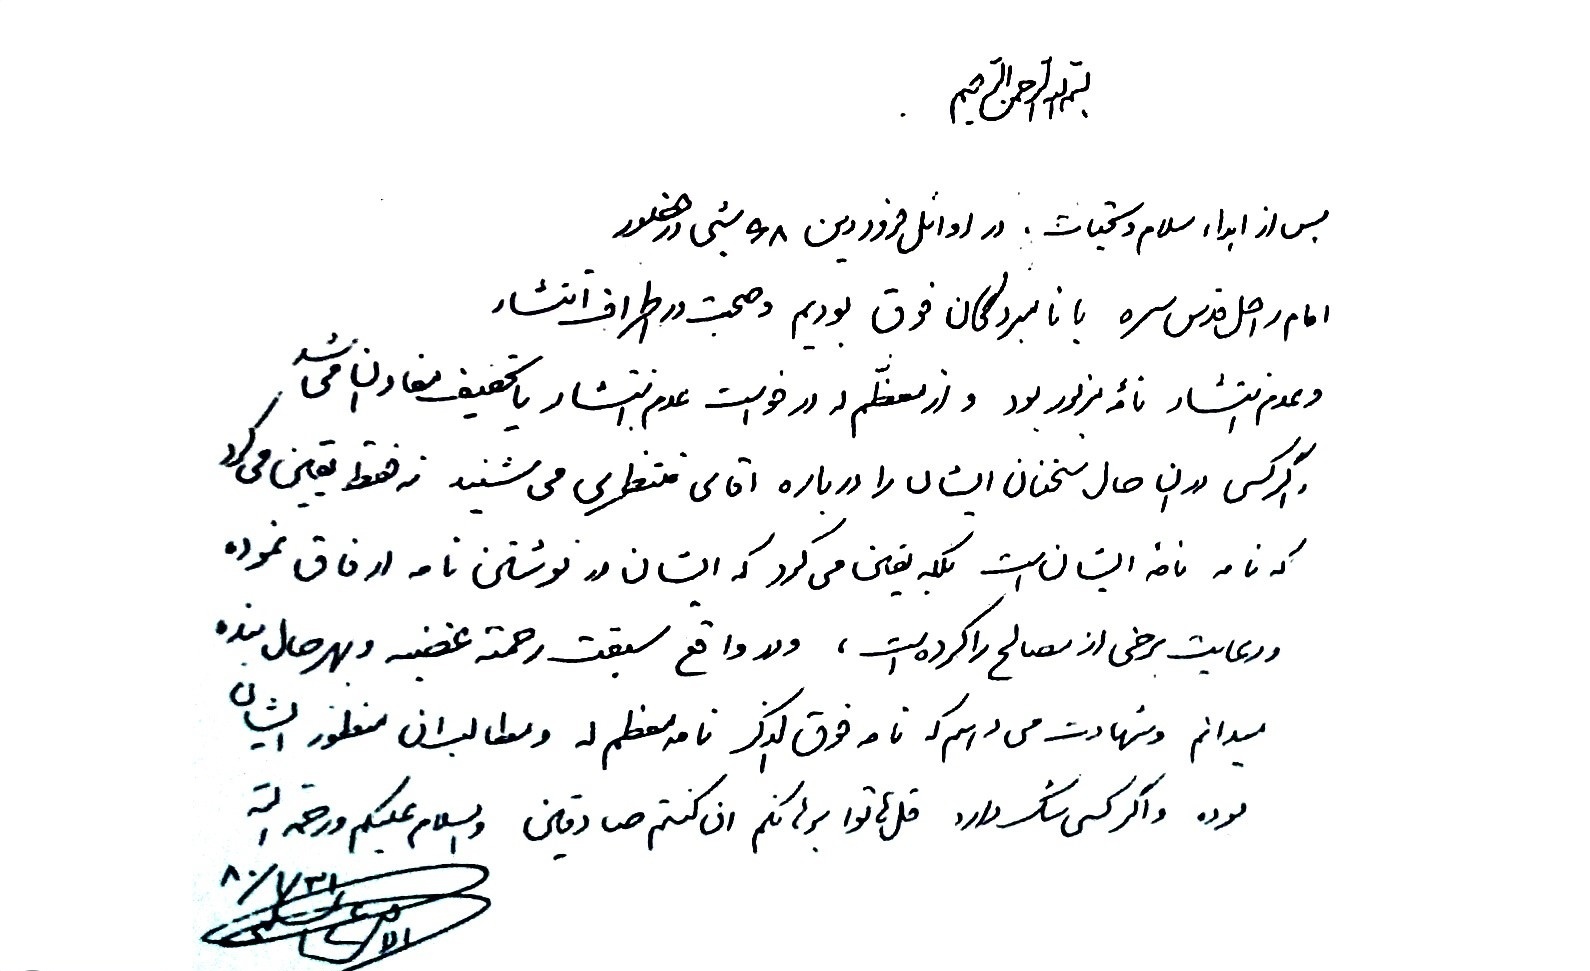 بسم الله الرحمن الرحیم
پس از اهداء سلام و تحیات، در اوائل فروردین ۶۸ شبی در حضور
امام راحل قدس سره با نامبردگان فوق بودیم و صحبت در اطراف انتشار
و عدم انتشار نامهٔ مزبور بود و از معظّم له درخواست عدم انتشار یا تخفیف مفاد آن می شد
و اگر کسی در آن حال سخنان ایشان را درباره آقای منتظری می شنید نه فقط یقین می کرد
که نامه نامهٔ ایشان است بلکه یقین می کرد که ایشان در نوشتن نامه ارفاق نموده
و رعایت برخی از مصالح را کرده است، و در واقع سبقت رحمته غضبه و بهر حال بنده
میدانم و شهادت می دهم که نامه فوق الذکر نامه معظم له و مطالب آن منظور ایشان
بوده و اگر کسی شک دارد قل هاتوا برهانکم ان کنتم صادقین والسلام علیکم و رحمة الله
۸۰/۱/۳۱